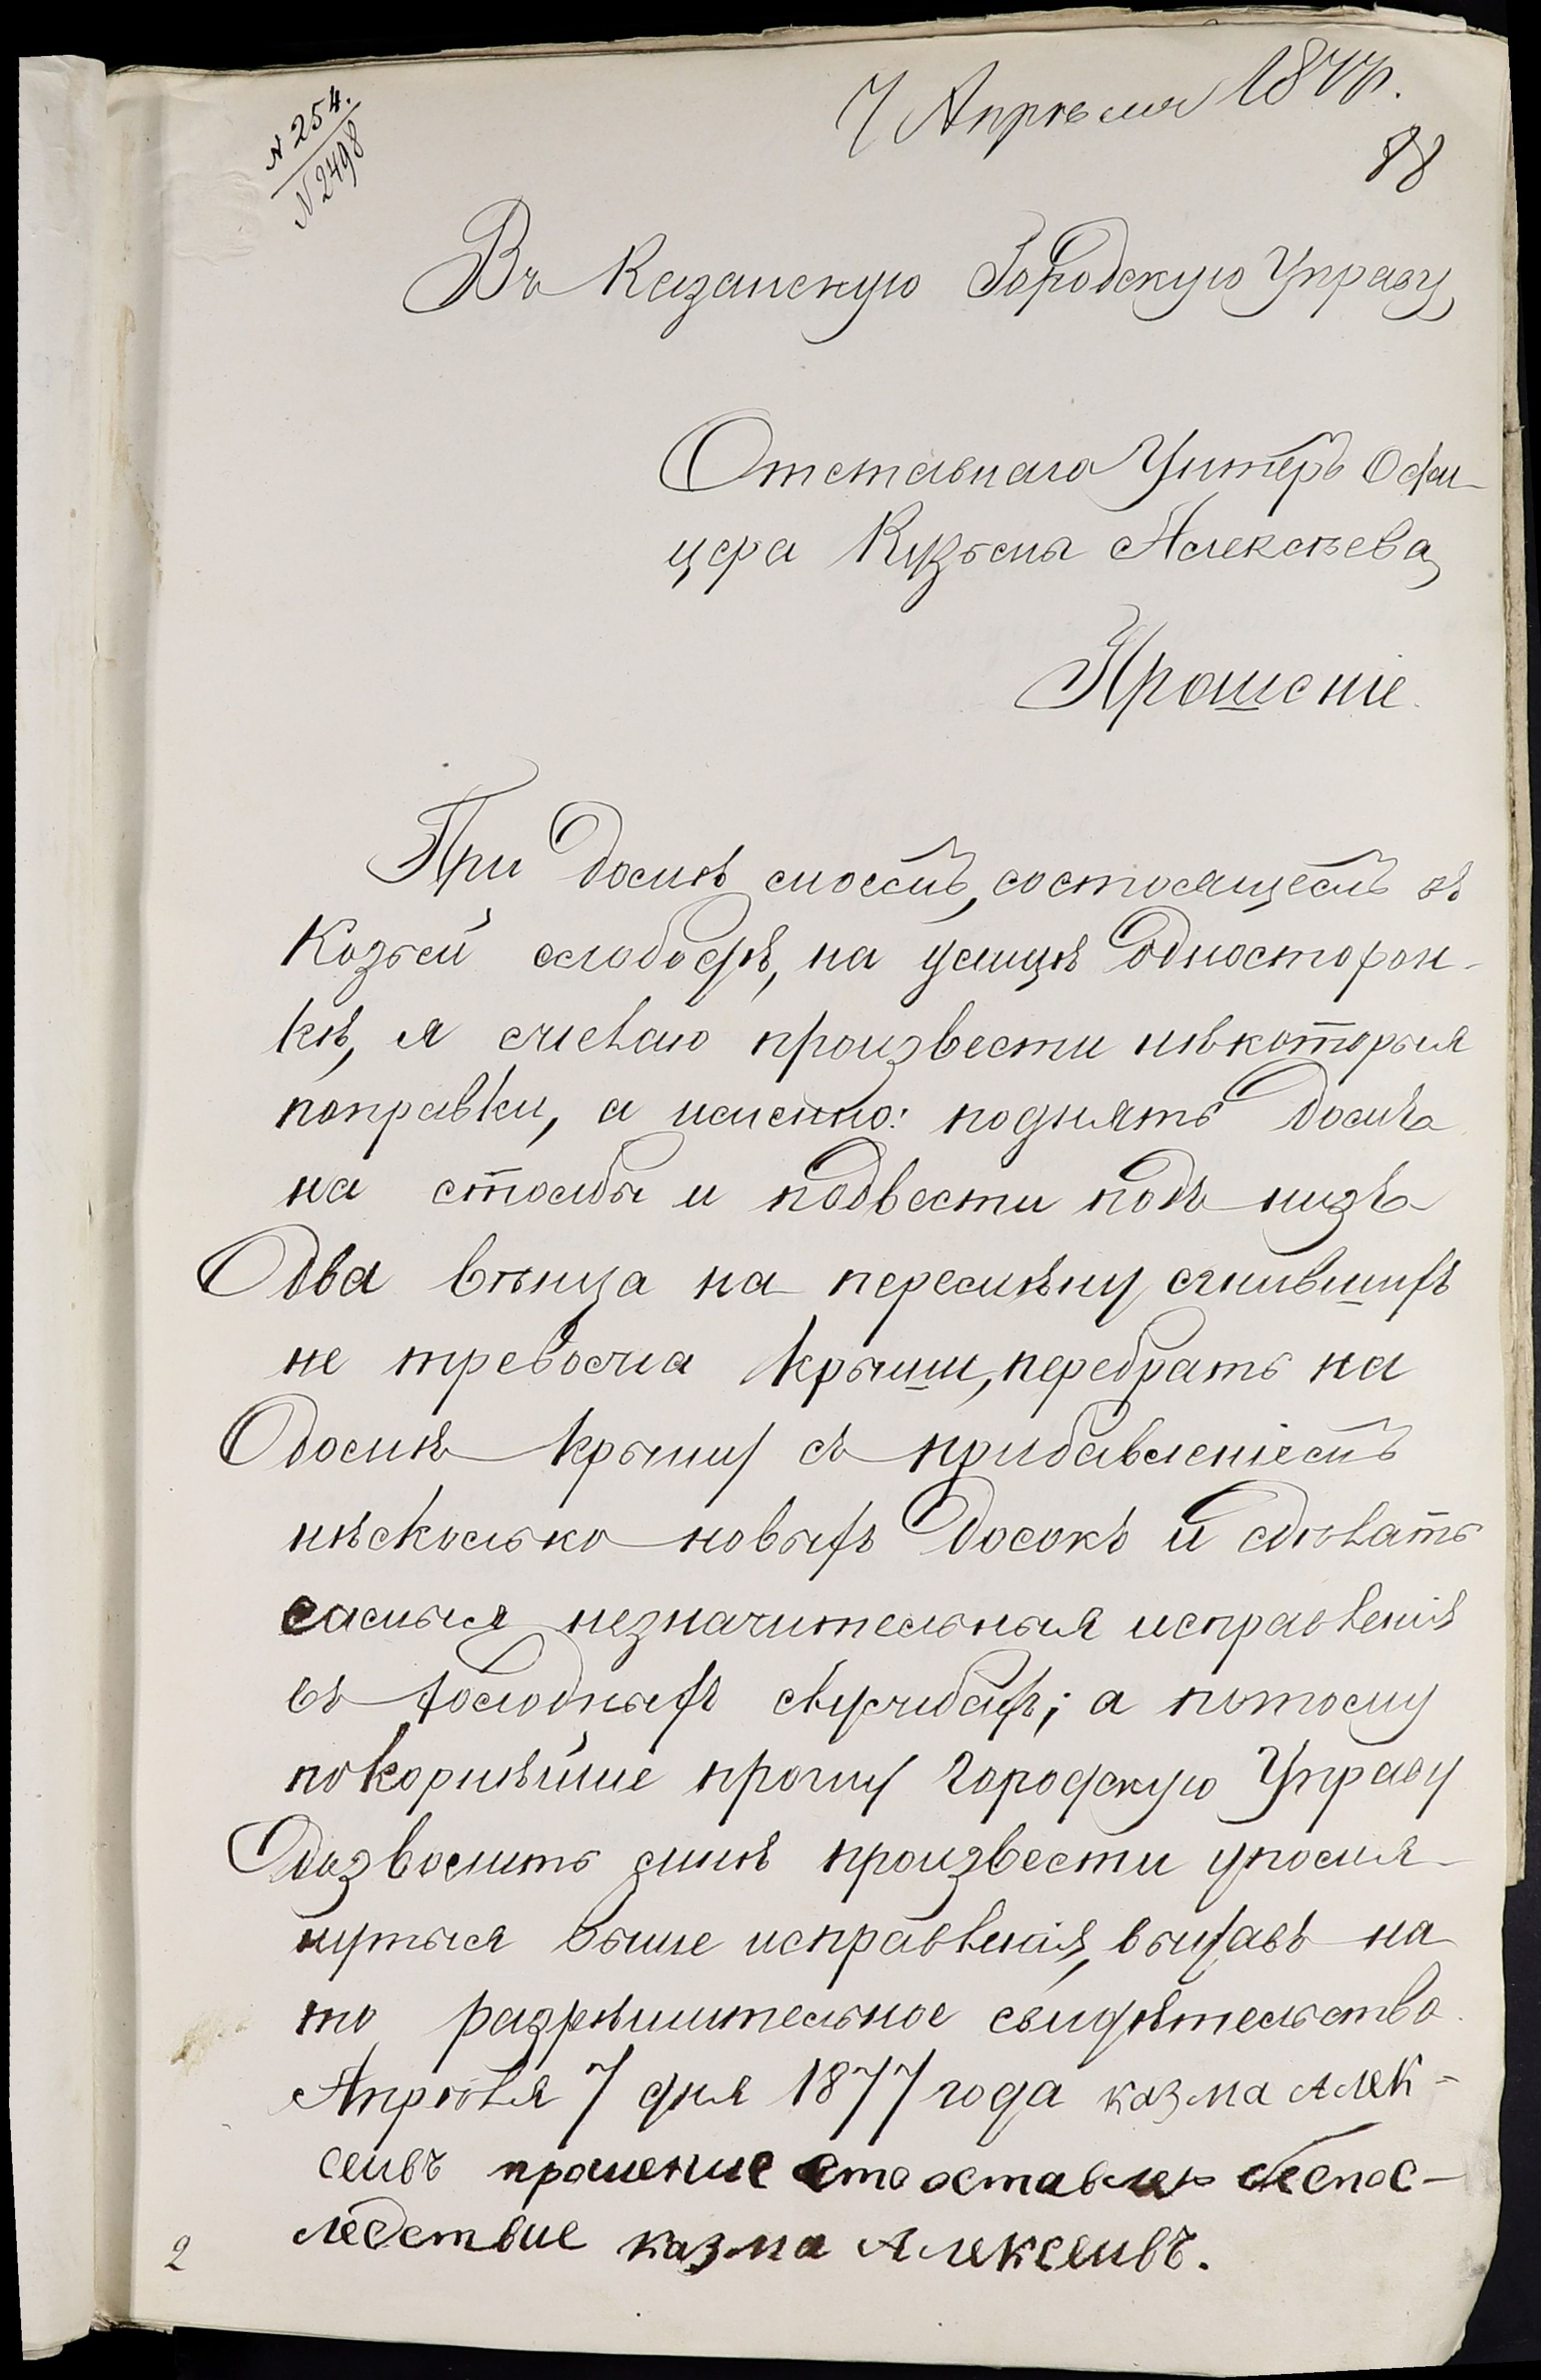 N 254.
N 2498
7 Апрѣля 1877.
88
Въ Казанскую Городскую Управу
Отставнаго Унтеръ Офи-
цера Кузьмы Алексѣева
Прошеніе.
При домѣ моемъ, состоящемъ въ
Козьей слободѣ, на улицѣ Односторон-
кѣ, я желаю произвести нѣкоторыя
поправки, а именно: поднять домъ
на столбы и подвести подъ низъ
два вѣнца на перемѣну сгнившихъ
не тревожа крыши, перебрать на
домѣ крышу съ прибавленіемъ
нѣсколько новыхъ досокъ и сдѣлать
самыя незначительныя исправленія
въ холодныхъ службахъ; а потому
покорнѣйше прошу Городскую Управу
дозволить мнѣ произвести упомя-
нутыя выше исправленія, выдавъ на
то разрѣшительное свидѣтельство.
Апрѣля 7 дня 1877 года казма Алек-
сеивъ прошение ето оставлею беспос-
ледствие казма Алексеивъ.
2